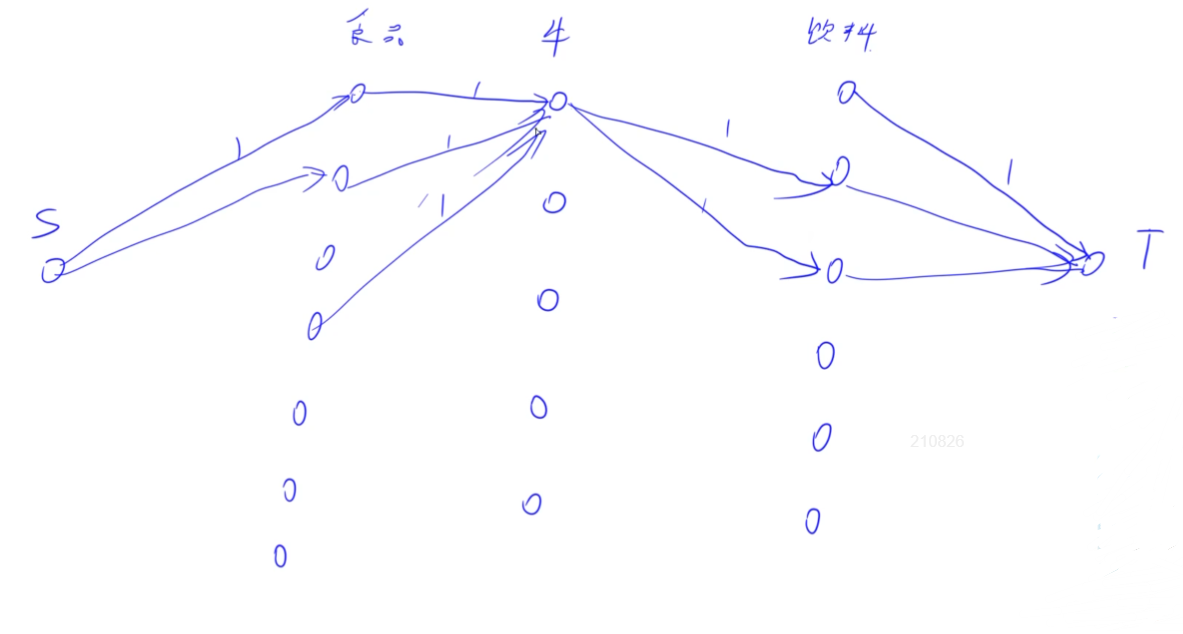 食品 牛 饮料
1 1 1 1 1
1 1 1
S T
210826